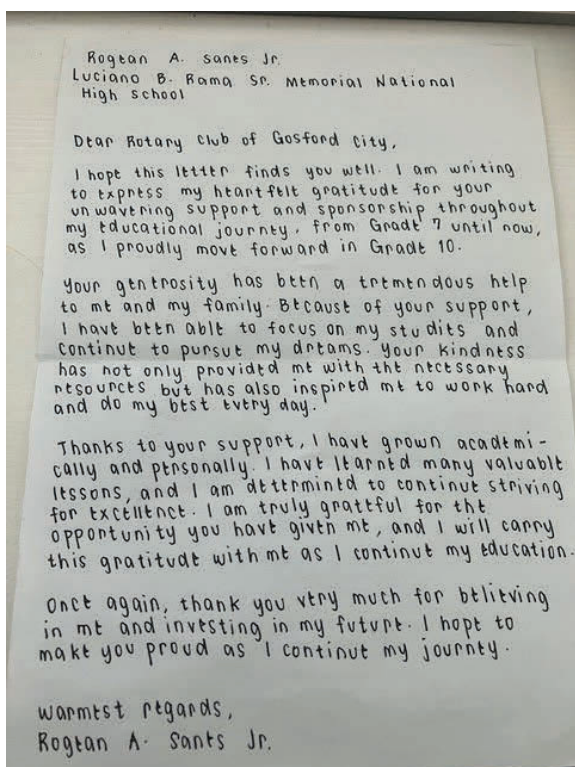 Rogean A. Sanes Jr.
Luciano B. Rama Sr. Memorial National
High School
Dear Rotary Club of Gosford City,
I hope this letter finds you well. I am writing
to express my heartfelt gratitude for your
unwavering support and sponsorship throughout
my educational journey, from Grade 7 until now,
as I proudly move forward in Grade 10.
Your generosity has been a tremendous help
to me and my family. Because of your support,
I have been able to focus on my studies and
continue to pursue my dreams. Your kindness
has not only provided me with the necessary
resources but has also inspired me to work hard
and do my best every day.
Thanks to your support, I have grown academi-
cally and personally. I have learned many valuable
lessons, and I am determined to continue striving
for excellence. I am truly grateful for the
opportunity you have given me, and I will carry
this gratitude with me as I continue my education.
Once again, thank you very much for believing
in me and investing in my future. I hope to
make you proud as I continue my journey.
Warmest regards,
Rogean A. Sanes Jr.